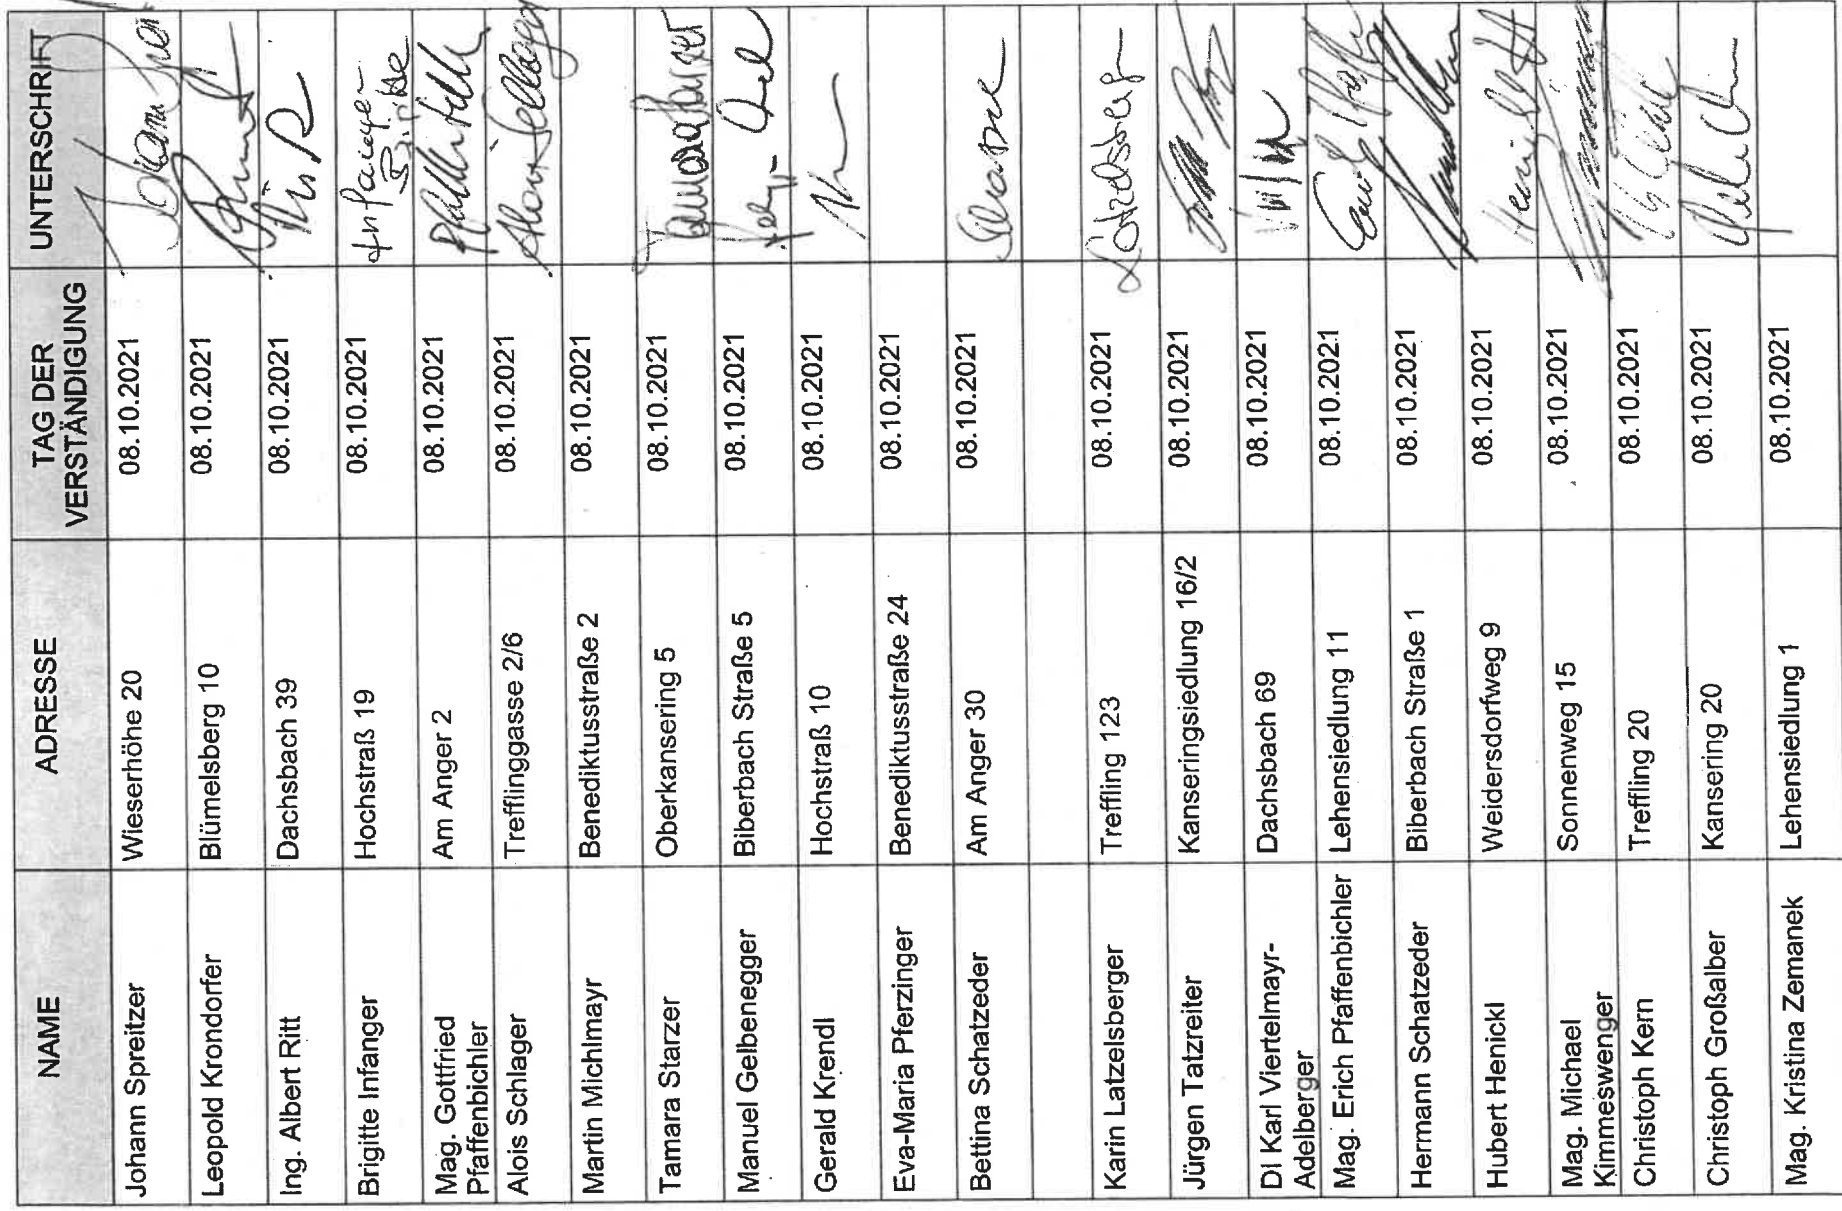 NAME ADRESSE TAG DER VERSTÄNDIGUNG UNTERSCHRIFT
Johann Spreitzer Wieserhöhe 20 08.10.2021 Johann
Leopold Krondorfer Blümelsberg 10 08.10.2021
Ing. Albert Ritt Dachsbach 39 08.10.2021
Brigitte Infanger Hochstraß 19 08.10.2021 Infanger Brigitte
Mag. Gottfried Pfaffenbichler Am Anger 2 08.10.2021
Alois Schlager Trefflinggasse 2/6 08.10.2021 Alois Schlager
Martin Michlmayr Benediktusstraße 2 08.10.2021
Tamara Starzer Oberkansering 5 08.10.2021
Manuel Gelbenegger Biberbach Straße 5 08.10.2021
Gerald Krendl Hochstraß 10 08.10.2021
Eva-Maria Pferzinger Benediktusstraße 24 08.10.2021
Bettina Schatzeder Am Anger 30 08.10.2021
Karin Latzelsberger Treffling 123 08.10.2021
Jürgen Tatzreiter Kanseringsiedlung 16/2 08.10.2021
DI Karl Viertelmayr-
Adelberger Dachsbach 69 08.10.2021
Mag. Erich Pfaffenbichler Lehensiedlung 11 08.10.2021
Hermann Schatzeder Biberbach Straße 1 08.10.2021
Hubert Henickl Weidersdorfweg 9 08.10.2021
Mag. Michael
Kimmeswenger Sonnenweg 15 08.10.2021
Christoph Kern Treffling 20 08.10.2021
Christoph Großalber Kansering 20 08.10.2021
Mag. Kristina Zemanek Lehensiedlung 1 08.10.2021